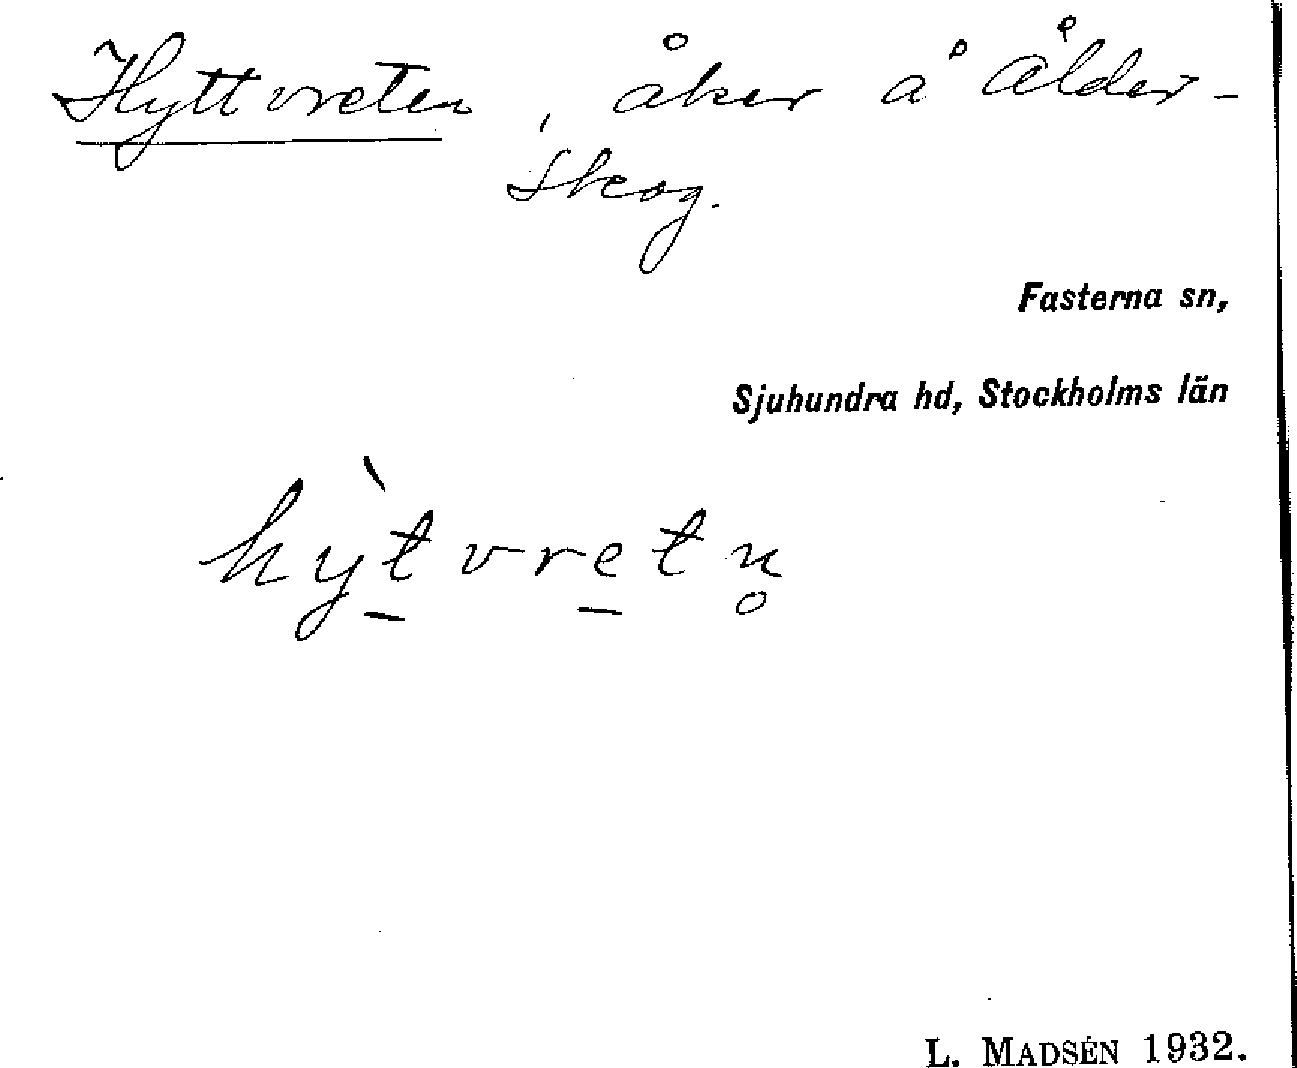 Hyttvreten, åker å Ålder-
skog.
Fasterna sn,
Sjuhundra hd, Stockholms län
hỳt̠vre̠tn̥
L. MADSÉN 1932.